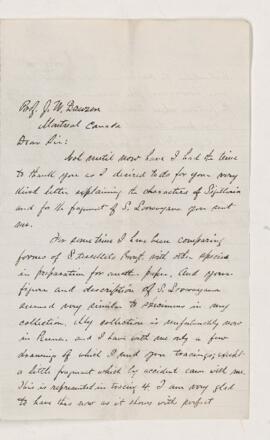 Prof. J. W. Dawson
Montreal Canada
Dear Sir:
Not until now have I had the time
to thank you as I desired to do for your very
kind letter explaining the characters of Sigillaria
and for the fragment of S. Lorwayana you sent
me.
For some time I have been comparing
forms of S. tessellata Brongt. with other species
in preparation for another paper. And your
figure and description of S. Lorwayana
seemed very similar to specimens in my
collection. My collection is unfortunately now
in and I have with me only a few
drawings of which I send you tracings, &
a little fragment which by accident came with me.
This is represented in tracing 4. I am very glad
to have this now as it shows with perfect